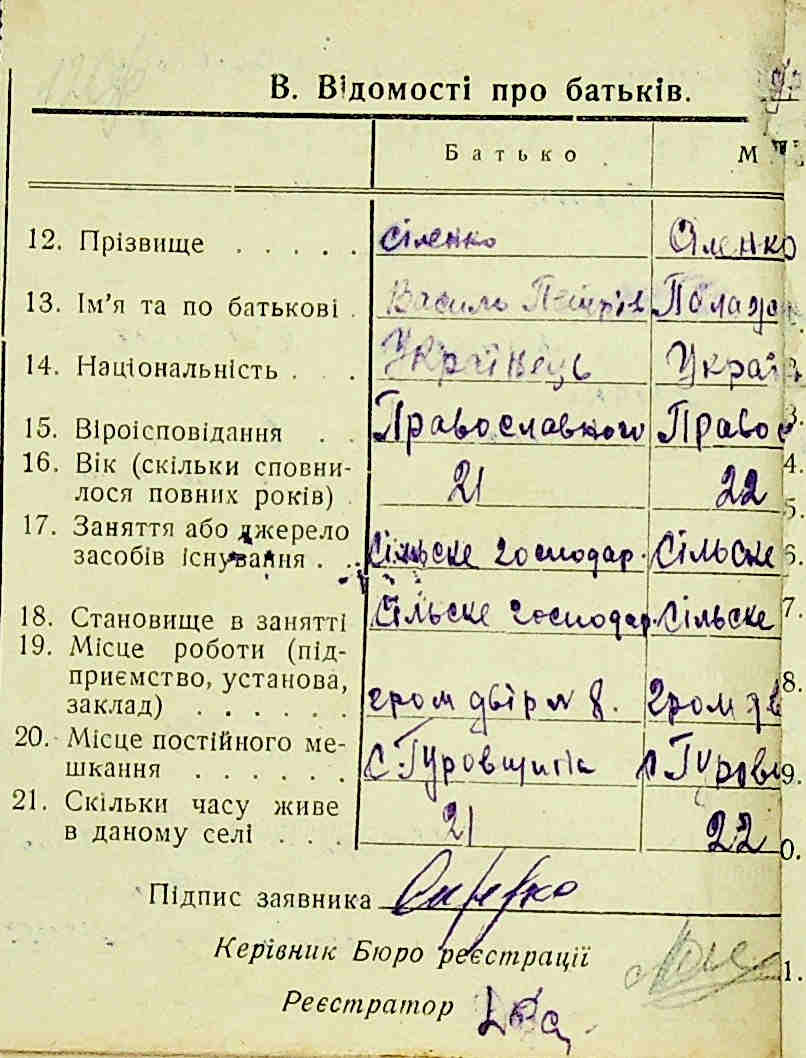 В. Відомості про батьків.
Батько М
12. Прізвище . . . . . Сіленко Сіленко
13. Ім'я та по батькові . Василь Петрів Полаж
14. Національність . . . Українець Украї
15. Віроісповідання . . Православного Правос
16. Вік (скільки сповни-
лося повних років) . 21 22
17. Заняття або джерело
засобів існування . . Сільске господар. Сільске
18. Становище в занятті Сільске господар. Сільске
19. Місце роботи (під-
приємство, установа,
заклад) . . . . . . гром двір № 8. гром дв
20. Місце постійного ме-
шкання . . . . . . с. Гуровщина с Гуров
21. Скільки часу живе
в даному селі . . . 21 22
Підпис заявника
Керівник Бюро реєстрації
Реєстратор
3.
4.
5.
6.
7.
8.
9.
0.
1.